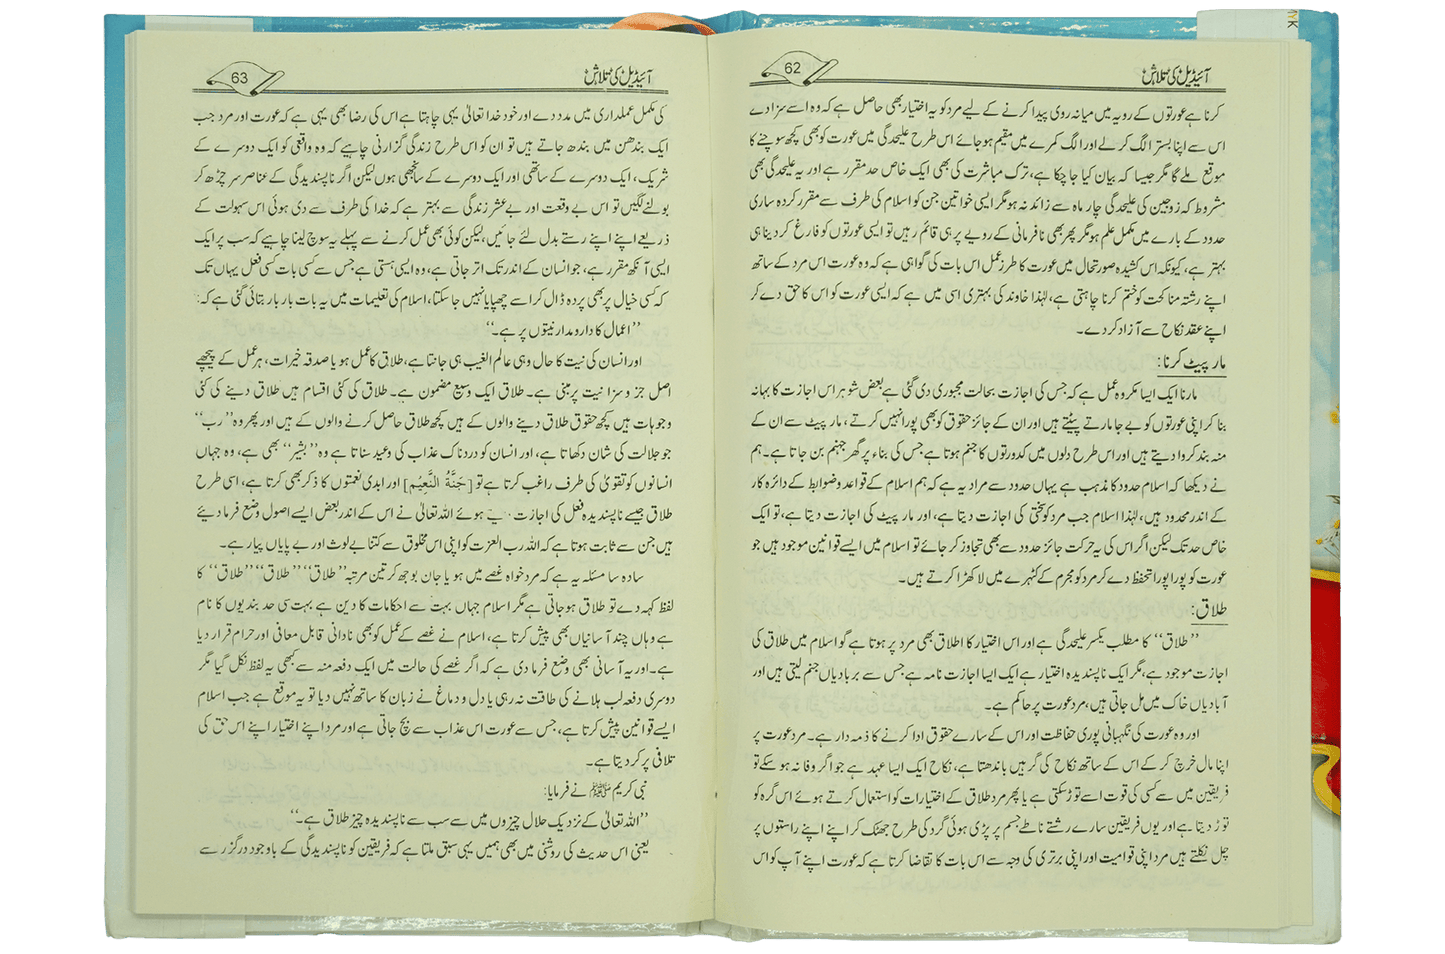 62
آئیڈیل کی تلاش
کرنا ہے عورتوں کے رویہ میں میانہ روی پیدا کرنے کے لیے مرد کو یہ اختیار بھی حاصل ہے کہ وہ اسے سزا دے
اس سے اپنا بستر الگ کر لے اور الگ کمرے میں مقیم ہو جائے اس طرح علیحدگی میں عورت کو بھی کچھ سوچنے کا
موقع ملے گا مگر جیسا کہ بیان کیا جا چکا ہے، ترک مباشرت کی بھی ایک خاص حد مقرر ہے اور یہ علیحدگی بھی
مشروط کہ زوجین کی علیحدگی چار ماہ سے زائد نہ ہو مگر ایسی خواتین جن کو اسلام کی طرف سے مقرر کردہ ساری
حدود کے بارے میں مکمل علم ہو مگر پھر بھی نافرمانی کے رویے پر ہی قائم رہیں تو ایسی عورتوں کو فارغ کر دینا ہی
بہتر ہے، کیونکہ اس کشیدہ صورتحال میں عورت کا طرز عمل اس بات کی گواہی ہے کہ وہ عورت اس مرد کے ساتھ
اپنے رشتہ مناکحت کو ختم کرنا چاہتی ہے، لہٰذا خاوند کی بہتری اسی میں ہے کہ ایسی عورت کو اس کا حق دے کر
اپنے عقد نکاح سے آزاد کر دے۔
مار پیٹ کرنا:
مارنا ایک ایسا مکروہ عمل ہے کہ جس کی اجازت بحالت مجبوری دی گئی ہے بعض شوہر اس اجازت کا بہانہ
بنا کر اپنی عورتوں کو بے جا مارتے پیٹتے ہیں اور ان کے جائز حقوق کو بھی پورا نہیں کرتے، مار پیٹ سے ان کے
منہ بند کروا دیتے ہیں اور اس طرح دلوں میں کدورتوں کا جنم ہوتا ہے جس کی بناء پر گھر جہنم بن جاتا ہے۔ ہم
نے دیکھا کہ اسلام حدود کا مذہب ہے یہاں حدود سے مراد یہ ہے کہ ہم اسلام کے قواعد و ضوابط کے دائرہ کار
کے اندر محدود ہیں، لہٰذا اسلام جب مرد کو سختی کی اجازت دیتا ہے، اور مار پیٹ کی اجازت دیتا ہے، تو ایک
خاص حد تک لیکن اگر اس کی یہ حرکت جائز حدود سے بھی تجاوز کر جائے تو اسلام میں ایسے قوانین موجود ہیں جو
عورت کو پورا پورا تحفظ دے کر مرد کو مجرم کے کٹہرے میں لا کھڑا کرتے ہیں۔
طلاق:
”طلاق“ کا مطلب یکسر علیحدگی ہے اور اس اختیار کا اطلاق بھی مرد پر ہوتا ہے گو اسلام میں طلاق کی
اجازت موجود ہے، مگر ایک ناپسندیدہ اختیار ہے ایک ایسا اجازت نامہ ہے جس سے بربادیاں جنم لیتی ہیں اور
آبادیاں خاک میں مل جاتی ہیں، مرد عورت پر حاکم ہے۔
اور وہ عورت کی نگہبانی پوری حفاظت اور اس کے سارے حقوق ادا کرنے کا ذمہ دار ہے۔ مرد عورت پر
اپنا مال خرچ کر کے اس کے ساتھ نکاح کی گرہیں باندھتا ہے، نکاح ایک ایسا عہد ہے جو اگر وفا نہ ہو سکے تو
فریقین میں سے کسی کی قوت اسے توڑ سکتی ہے یا پھر مرد طلاق کے اختیارات کو استعمال کرتے ہوئے اس گرہ کو
توڑ دیتا ہے اور یوں فریقین سارے رشتے ناطے جسم پر پڑی ہوئی گرد کی طرح جھٹک کر اپنے اپنے راستوں پر
چل نکلتے ہیں مرد اپنی قوامیت اور اپنی برتری کی وجہ سے اس بات کا تقاضا کرتا ہے کہ عورت اپنے آپ کو اس
63
آئیڈیل کی تلاش
کی مکمل عملداری میں مدد دے اور خود خدا تعالیٰ یہی چاہتا ہے اس کی رضا بھی یہی ہے کہ عورت اور مرد جب
ایک بندھن میں بندھ جاتے ہیں تو ان کو اس طرح زندگی گزارنی چاہیے کہ وہ واقعی کو ایک دوسرے کے
شریک، ایک دوسرے کے ساتھی اور ایک دوسرے کے سانجھی ہوں لیکن اگر ناپسندیدگی کے عناصر سر چڑھ کر
بولنے لگیں تو اس بے وقعت اور بے عشر زندگی سے بہتر ہے کہ خدا کی طرف سے دی ہوئی اس سہولت کے
ذریعے اپنے اپنے رستے بدل لئے جائیں، لیکن کوئی بھی عمل کرنے سے پہلے یہ سوچ لینا چاہیے کہ سب پر ایک
ایسی آنکھ مقرر ہے، جو انسان کے اندر تک اتر جاتی ہے، وہ ایسی ہستی ہے جس سے کسی بات کسی فعل یہاں تک
کہ کسی خیال پر بھی پردہ ڈال کر اسے چھپایا نہیں جا سکتا، اسلام کی تعلیمات میں یہ بات بار بار بتائی گئی ہے کہ:
”اعمال کا دارومدار نیتوں پر ہے۔“
اور انسان کی نیت کا حال وہی عالم الغیب ہی جانتا ہے، طلاق کا عمل ہو یا صدقہ خیرات، ہر عمل کے پیچھے
اصل جزو سزا نیت پر مبنی ہے۔ طلاق ایک وسیع مضمون ہے۔ طلاق کی کئی اقسام ہیں طلاق دینے کی کئی
وجوہات ہیں کچھ حقوق طلاق دینے والوں کے ہیں کچھ طلاق حاصل کرنے والوں کے ہیں اور پھر وہ ”رب“
جو جلالت کی شان دکھاتا ہے، اور انسان کو دردناک عذاب کی وعید سناتا ہے وہ ”بشیر“ بھی ہے، وہ جہاں
انسانوں کو تقویٰ کی طرف راغب کرتا ہے تو [جَنَّةُ النَّعِيْمِ] اور ابدی نعمتوں کا ذکر بھی کرتا ہے، اسی طرح
طلاق جیسے ناپسندیدہ فعل کی اجازت ہوئے اللہ تعالیٰ نے اس کے اندر بعض ایسے اصول وضع فرما دیئے
ہیں جن سے ثابت ہوتا ہے کہ اللہ رب العزت کو اپنی اس مخلوق سے کتنا بے لوث اور بے پایاں پیار ہے۔
سادہ سا مسئلہ یہ ہے کہ مرد خواہ غصے میں ہو یا جان بوجھ کر تین مرتبہ ”طلاق“ ”طلاق“ ”طلاق“ کا
لفظ کہہ دے تو طلاق ہو جاتی ہے مگر اسلام جہاں بہت سے احکامات کا دین ہے بہت سی حد بندیوں کا نام
ہے وہاں چند آسانیاں بھی پیش کرتا ہے، اسلام نے غصے کے عمل کو بھی نادانی قابل معافی اور حرام قرار دیا
ہے۔ اور یہ آسانی بھی وضع فرما دی ہے کہ اگر غصے کی حالت میں ایک دفعہ منہ سے کبھی یہ لفظ نکل گیا مگر
دوسری دفعہ لب ہلانے کی طاقت نہ رہی یا دل و دماغ نے زبان کا ساتھ نہیں دیا تو یہ موقع ہے جب اسلام
ایسے قوانین پیش کرتا ہے، جس سے عورت اس عذاب سے بچ جاتی ہے اور مرد اپنے اختیار اپنے اس حق کی
تلافی پر کر دیتا ہے۔
نبی کریم ﷺ نے فرمایا:
”اللہ تعالیٰ کے نزدیک حلال چیزوں میں سے سب سے ناپسندیدہ چیز طلاق ہے۔“
یعنی اس حدیث کی روشنی میں بھی ہمیں یہی سبق ملتا ہے کہ فریقین کو ناپسندیدگی کے باوجود درگزر سے